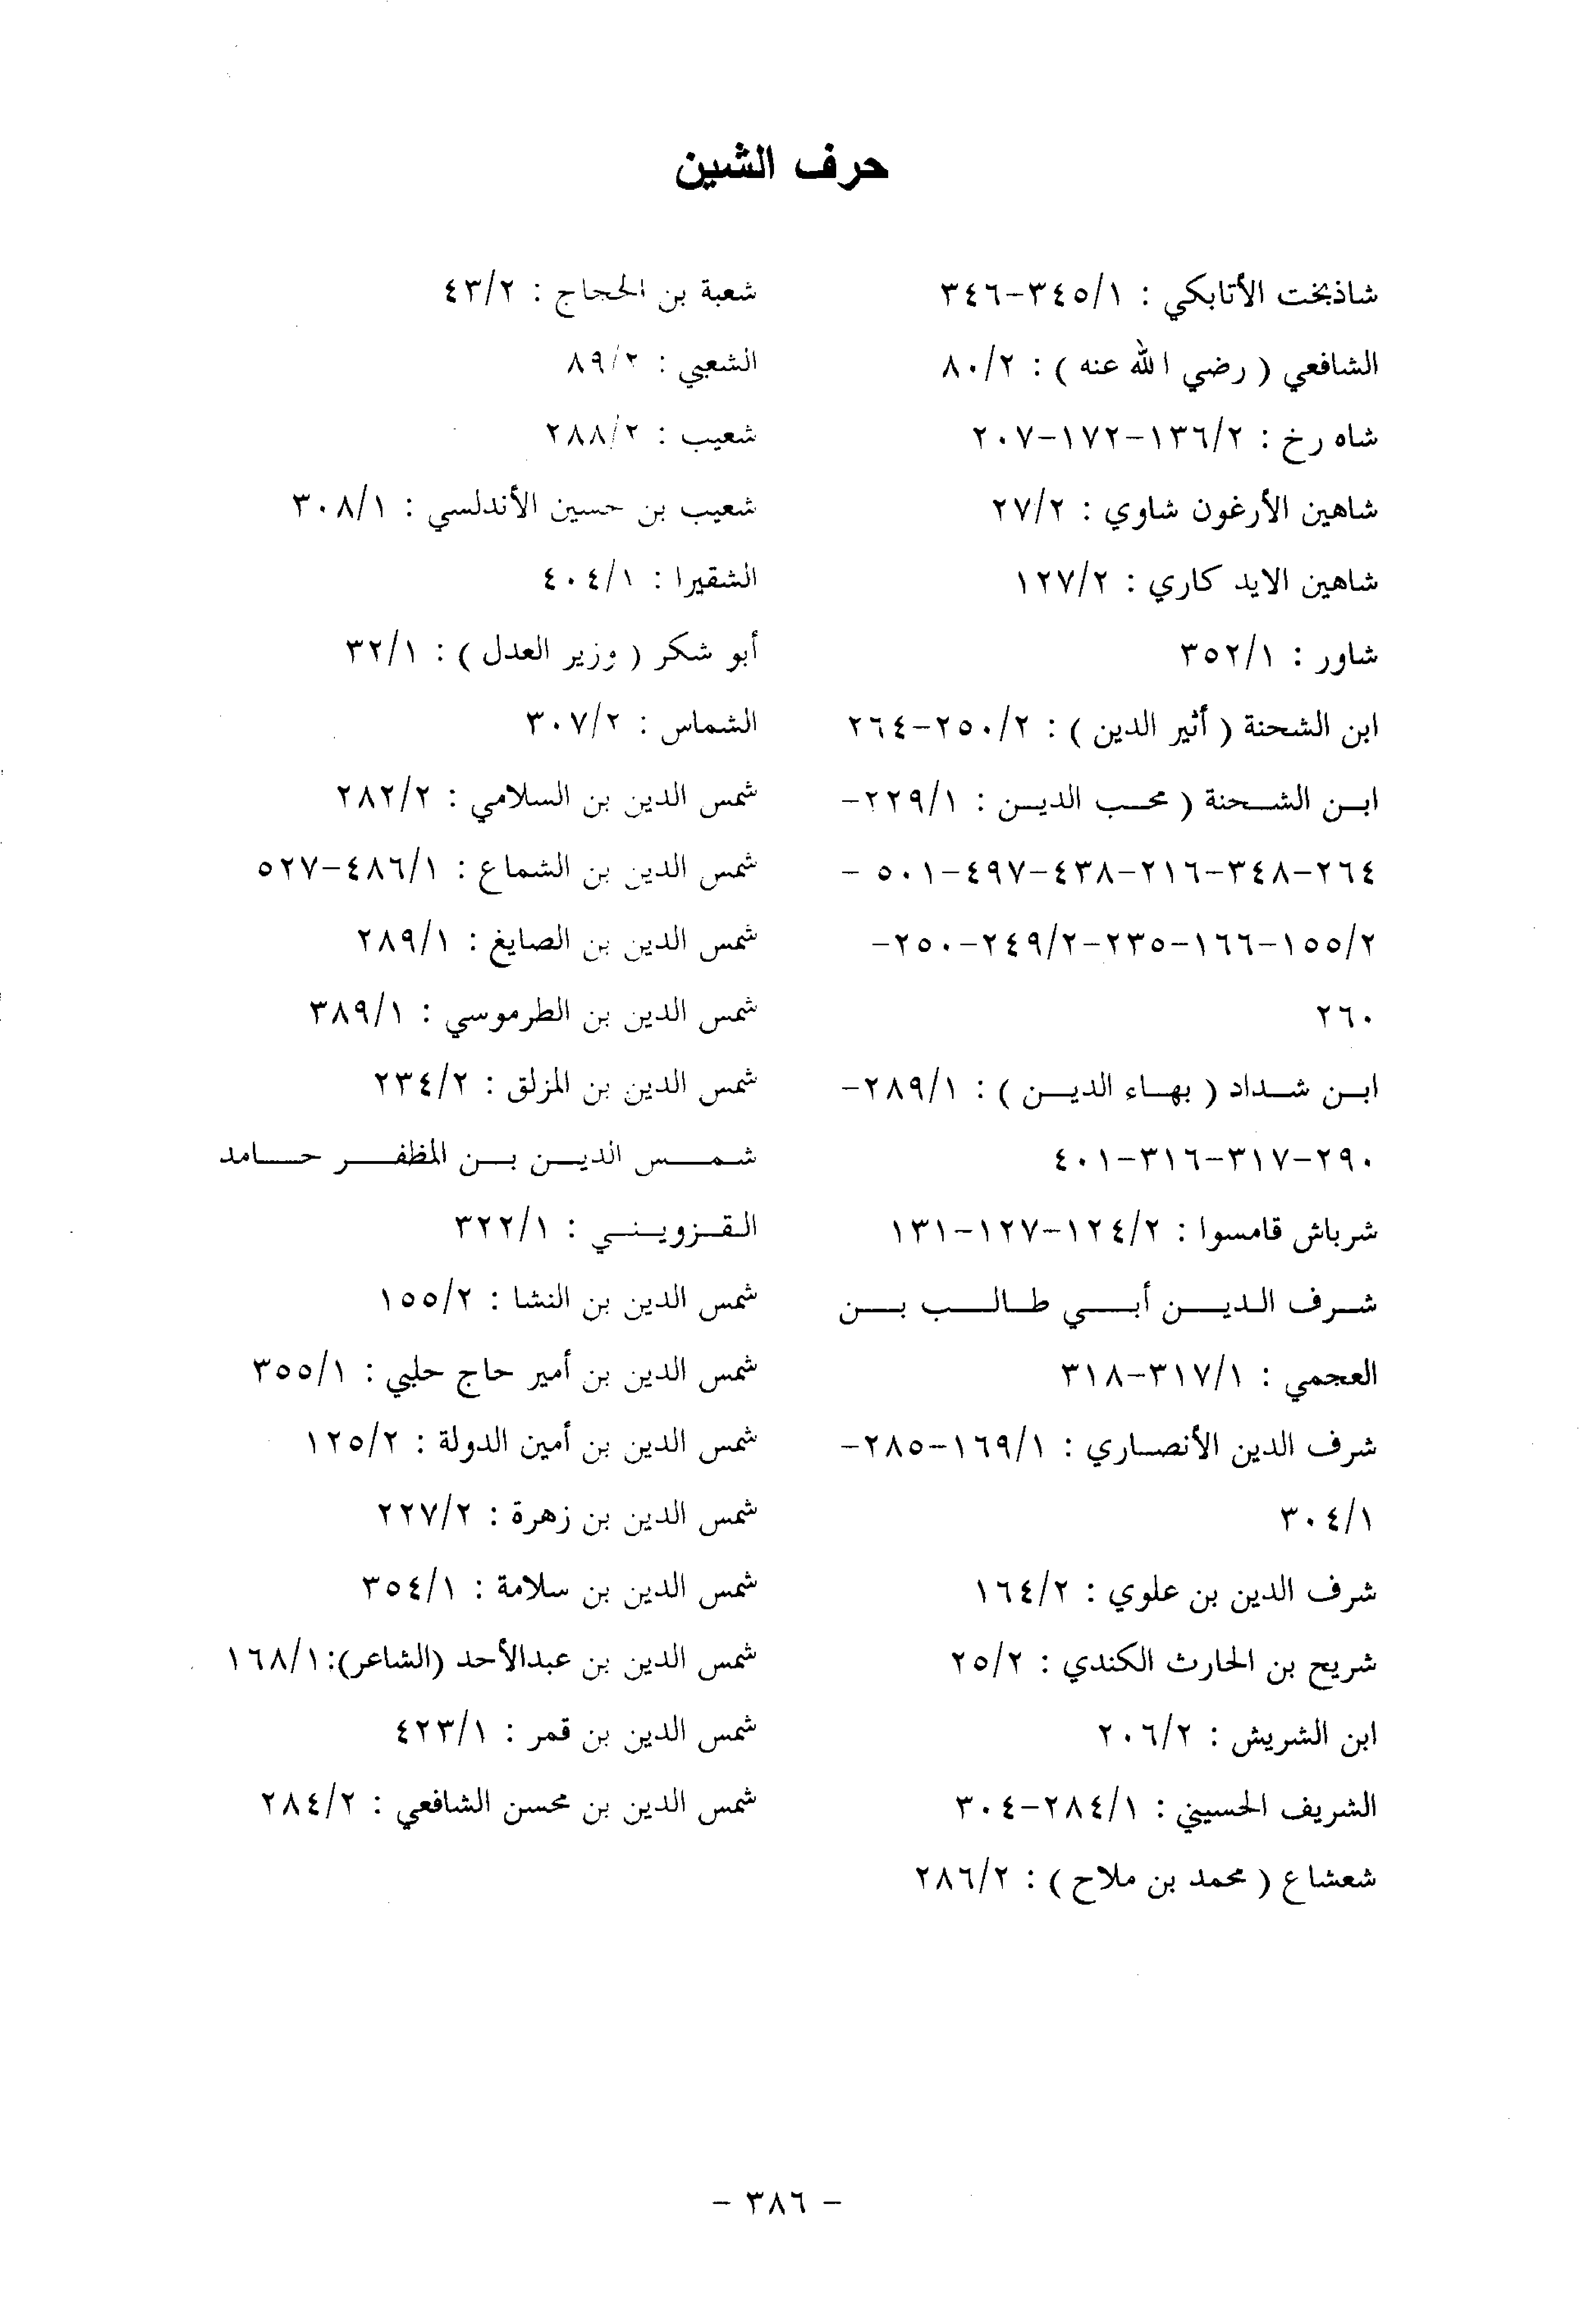 حرف الشين
شاذبخت الأتابكي : ٣٤٥/١-٣٤٦
الشافعي ( رضي الله عنه ) : ٨٠/٢
شاه رخ : ١٣٦/٢-١٧٢-٢٠٧
شاهين الأرغون شاوي : ٢٧/٢
شاهين الايد كاري : ١٢٧/٢
شاور : ٣٥٢/١
ابن الشحنة ( أثير الدين ) : ٢٥٠/٢-٢٦٤
ابـن الشـحنة ( محـب الديـن : ٢٢٩/١-
٢٦٤-٣٤٨-٢١٦-٤٣٨-٤٩٧-٥٠١ -
١٥٥/٢-١٦٦-٢٣٥-٢٤٩/٢-٢٥٠-
٢٦٠
ابـن شـداد ( بهـاء الديـن ) : ٢٨٩/١-
٢٩٠-٣١٧-٣١٦-٤٠١
شرباش قامسوا : ١٢٤/٢-١٢٧-١٣١
شـرف الـديـن أبـي طـالـب بـن
العجمي : ٣١٧/١-٣١٨
شرف الدين الأنصـاري : ١٦٩/١-٢٨٥-
٣٠٤/١
شرف الدين بن علوي : ١٦٤/٢
شريح بن الحارث الكندي : ٢٥/٢
ابن الشريش : ٢٠٦/٢
الشريف الحسيني : ٢٨٤/١-٣٠٤
شعشاع ( محمد بن ملاح ) : ٢٨٦/٢
شعبة بن الحجاج : ٤٣/٢
الشعبي : ٨٩/٢
شعيب : ٢٨٨/٢
شعيب بن حسين الأندلسي : ٣٠٨/١
الشقيرا : ٤٠٤/١
أبو شكر ( وزير العدل ) : ٣٢/١
الشماس : ٣٠٧/٢
شمس الدين بن السلامي : ٢٨٢/٢
شمس الدين بن الشماع : ٤٨٦/١-٥٢٧
شمس الدين بن الصايغ : ٢٨٩/١
شمس الدين بن الطرموسي : ٣٨٩/١
شمس الدين بن المزلق : ٢٣٤/٢
شـمـس الديـن بـن المظفـر حـامد
الـقـزويـنـي : ٣٢٢/١
شمس الدين بن النشا : ١٥٥/٢
شمس الدين بن أمير حاج حلبي : ٣٥٥/١
شمس الدين بن أمين الدولة : ١٢٥/٢
شمس الدين بن زهرة : ٢٢٧/٢
شمس الدين بن سلامة : ٣٥٤/١
شمس الدين بن عبدالأحد (الشاعر):١٦٨/١
شمس الدين بن قمر : ٤٢٣/١
شمس الدين بن محسن الشافعي : ٢٨٤/٢
- ٣٨٦ -